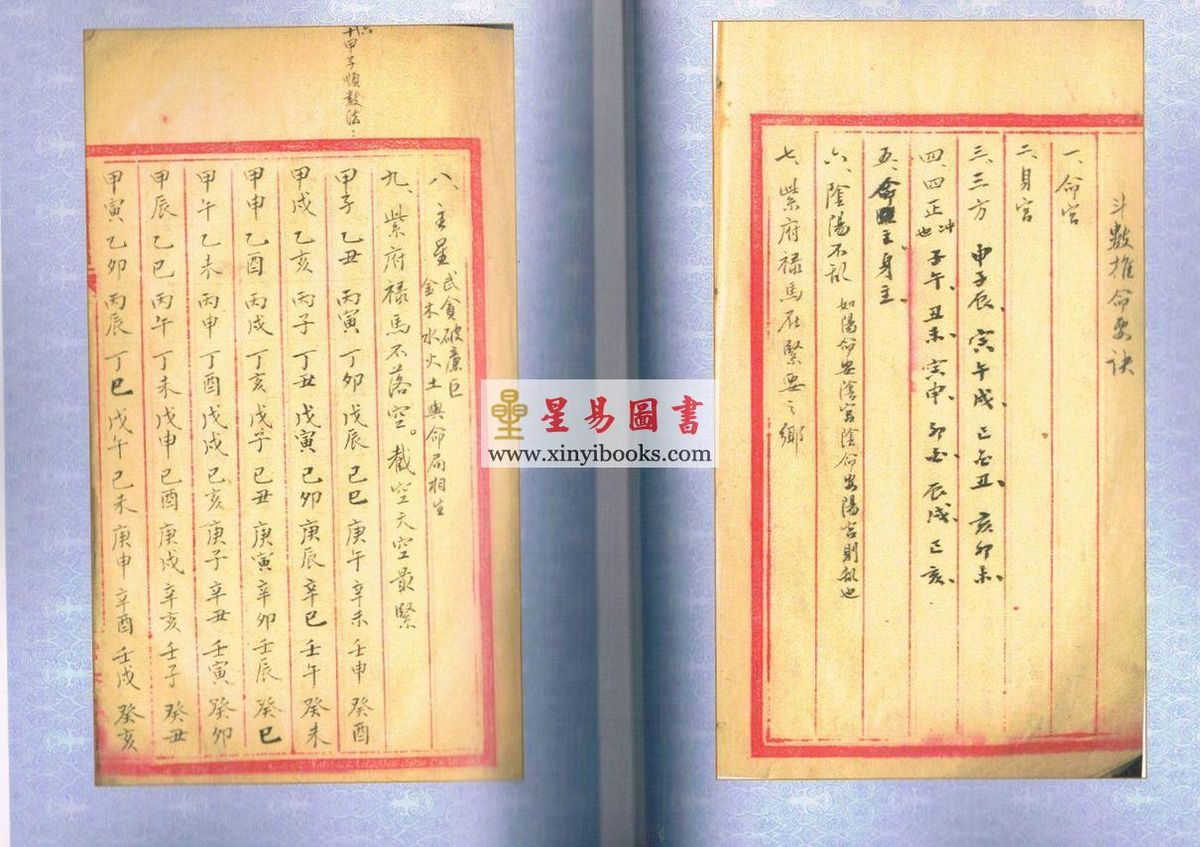 斗數推命要訣
一、命宮
二、身宮
三、三方 申子辰、寅午戌、巳酉丑、亥卯未、
四、四正 冲也 子午、丑未、寅申、卯酉、辰戌、巳亥、
五、命主、身主、
六、陰陽不亂 如陽命安陰宮陰命安陽宮則亂也
七、紫府祿馬居緊要之鄉
六十甲子順數法:
八、主星 武貪破廉巨 金木水火土與命局相生
九、紫府祿馬不落空。截空天空最緊
甲子 乙丑 丙寅 丁卯 戊辰 己巳 庚午 辛未 壬申 癸酉
甲戌 乙亥 丙子 丁丑 戊寅 己卯 庚辰 辛巳 壬午 癸未
甲申 乙酉 丙戌 丁亥 戊子 己丑 庚寅 辛卯 壬辰 癸巳
甲午 乙未 丙申 丁酉 戊戌 己亥 庚子 辛丑 壬寅 癸卯
甲辰 乙巳 丙午 丁未 戊申 己酉 庚戌 辛亥 壬子 癸丑
甲寅 乙卯 丙辰 丁巳 戊午 己未 庚申 辛酉 壬戌 癸亥
星易圖書
www.xinyibooks.com